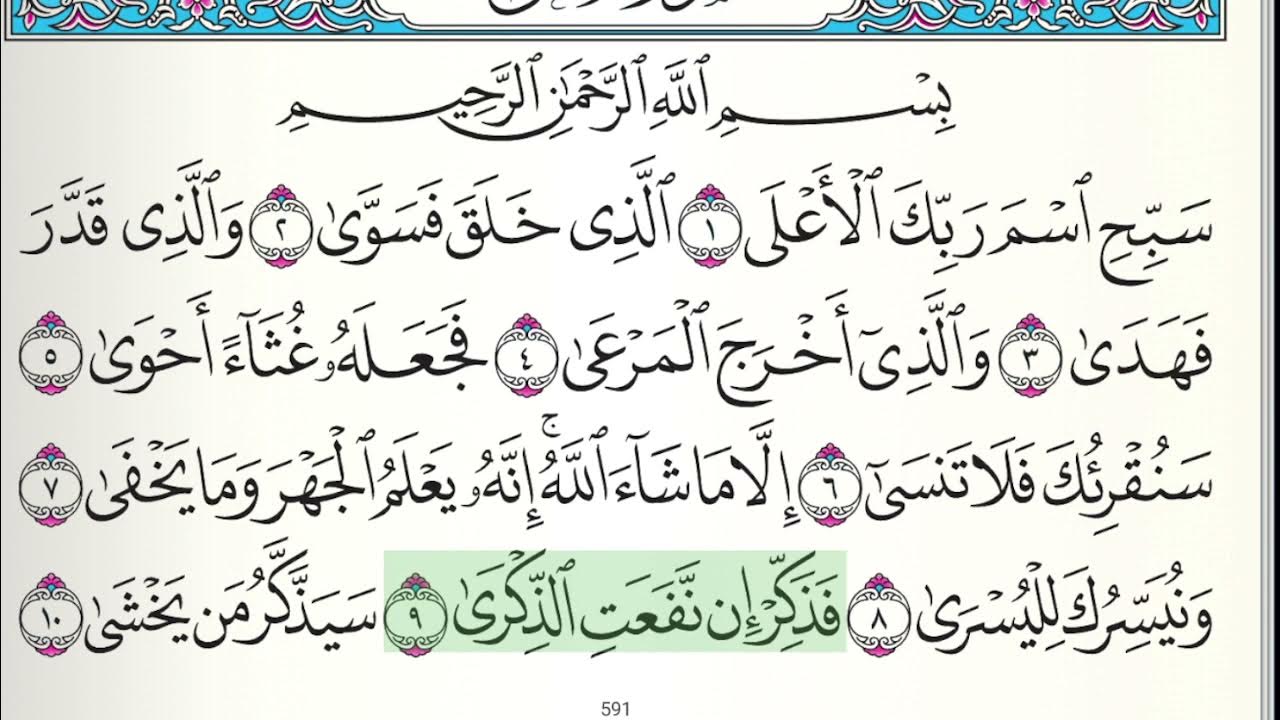 بِسْمِ ٱللَّهِ ٱلرَّحْمَٰنِ ٱلرَّحِيمِ
سَبِّحِ ٱسْمَ رَبِّكَ ٱلْأَعْلَى ١ ٱلَّذِى خَلَقَ فَسَوَّىٰ ٢ وَٱلَّذِى قَدَّرَ
فَهَدَىٰ ٣ وَٱلَّذِىٓ أَخْرَجَ ٱلْمَرْعَىٰ ٤ فَجَعَلَهُۥ غُثَآءً أَحْوَىٰ ٥
سَنُقْرِئُكَ فَلَا تَنسَىٰٓ ٦ إِلَّا مَا شَآءَ ٱللَّهُ ۚ إِنَّهُۥ يَعْلَمُ ٱلْجَهْرَ وَمَا يَخْفَىٰ ٧
وَنُيَسِّرُكَ لِلْيُسْرَىٰ ٨ فَذَكِّرْ إِن نَّفَعَتِ ٱلذِّكْرَىٰ ٩ سَيَذَّكَّرُ مَن يَخْشَىٰ ١٠
591